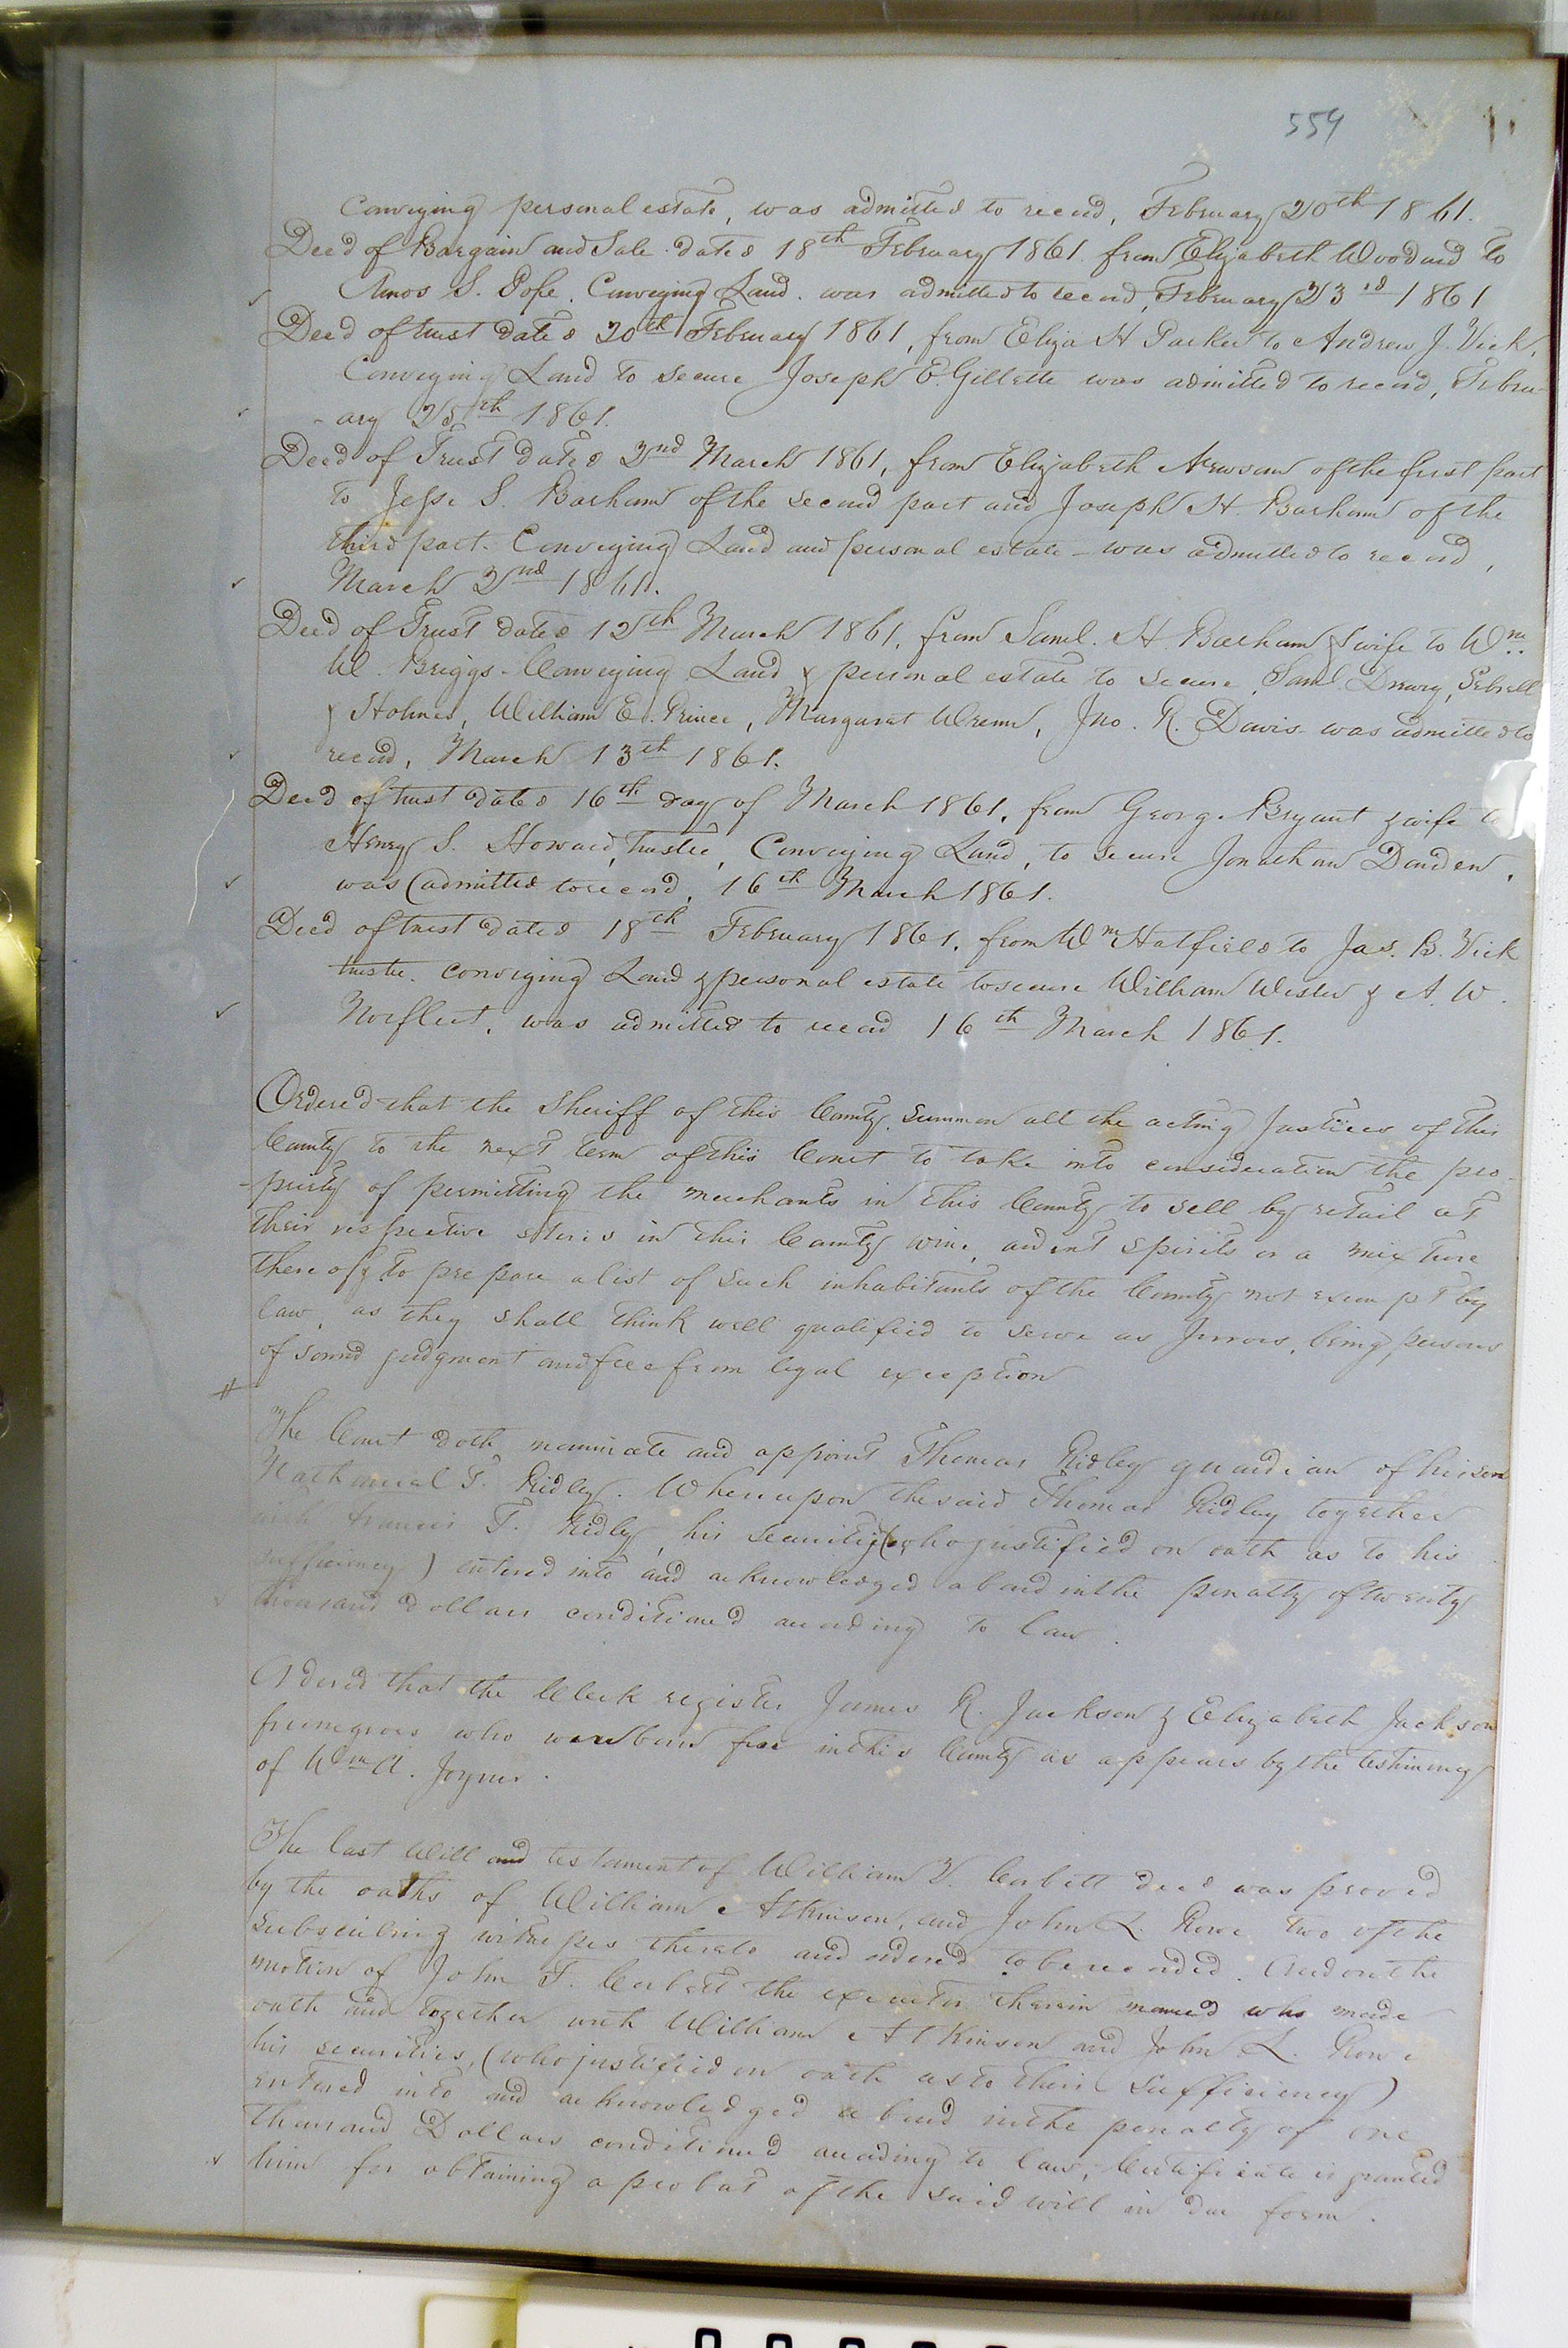 554
Conveying personal estate, was admitted to record, February 20th 1861.
Deed of Bargain and Sale dated 18th February 1861. from Elizabeth Woodard to
Amos S. Pope. Conveying Land. was admitted to record, February 23rd 1861
Deed of trust dated 20th February 1861, from Eliza H Parker to Andrew J. Vick,
Conveying Land to secure Joseph E. Gillette was admitted to record, Febru-
-ary 25th 1861.
Deed of Trust dated 2nd March 1861, from Elizabeth Newsom of the first part
to Jesse S. Barham of the second part and Joseph H. Barham of the
third part. Conveying Land and personal estate - was admitted to record,
March 2nd 1861.
Deed of Trust dated 12th March 1861, from Saml. H. Barham & wife to Wm.
W. Briggs - Conveying Land & personal estate to secure, Saml. Drewry, Sebrell
& Holmes, William E. Prince, Margarat Wrenn, Jno. R. Davis - was admitted to
record, March 13th 1861.
Deed of trust dated 16th day of March 1861, from George Bryant & wife to
Henry S. Howard, Trustee, Conveying Land, to secure Jonathan Darden,
was admitted to record, 16th March 1861.
Deed of trust dated 18th February 1861, from Wm Hatfield to Jas. B. Vick
trustee. conveying Land & personal estate to secure William Wester & A. W.
Norfleet, was admitted to record 16th March 1861.
Ordered that the Sheriff of this County, summon all the acting Justices of this
County to the next term of this Court to take into consideration the pro-
-priety of permitting the merchants in this County to sell by retail at
their respective stores in this County wine, ardent spirits or a mixture
thereof & to prepare a list of such inhabitants of the County not exempt by
law, as they shall think well qualified to serve as Jurors, being persons
of sound judgment and free from legal exception
#
The Court doth nominate and appoint Thomas Ridley guardian of his son
Nathanial T. Ridley. Whereupon the said Thomas Ridley together
with Francis T. Ridley, his security (who justified on oath as to his
sufficiency) entered into and acknowledged a bond in the penalty of twenty
thousand dollars conditioned according to law.
Ordered that the Clerk register James R. Jackson & Elizabeth Jackson
free negroes who were born free in this County as appears by the testimony
of Wm A. Joyner.
The last Will and testament of William V. Corbitt decd was proved
by the oaths of William Atkinson, and John L. Rowe two of the
subscribing witnesses thereto and ordered to be recorded. And on the
motion of John T. Corbett the executor therein named who made
oath and together with William Atkinson and John L. Rowe
his securities, (who justified on oath as to their sufficiency)
entered into and acknowledged a bond in the penalty of one
thousand Dollars conditioned according to law, Certificate is granted
him for obtaining a probat of the said will in due form.